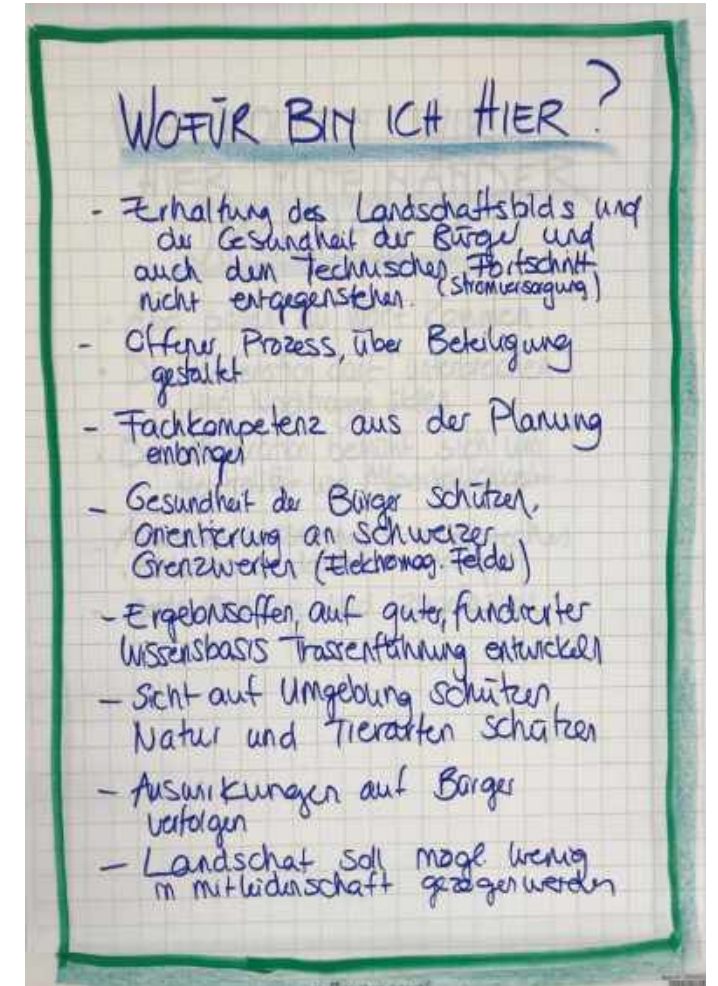 WOFÜR BIN ICH HIER?
- Erhaltung des Landschaftsbilds und
der Gesundheit der Bürger und
auch dem Technischen Fortschritt
nicht entgegenstehen. (Stromversorgung)
- Offener Prozess, über Beteiligung
gestaltet
- Fachkompetenz aus der Planung
einbringen
- Gesundheit der Bürger schützen,
Orientierung an Schweizer
Grenzwerten (Elektromag. Felder)
- Ergebnisoffen, auf guter, fundierter
Wissensbasis Trassenführung entwickeln
- Sicht auf Umgebung schützen,
Natur und Tierarten schützen
- Auswirkungen auf Bürger
verfolgen
- Landschat soll mögl. wenig
in mitleidenschaft gezogen werden